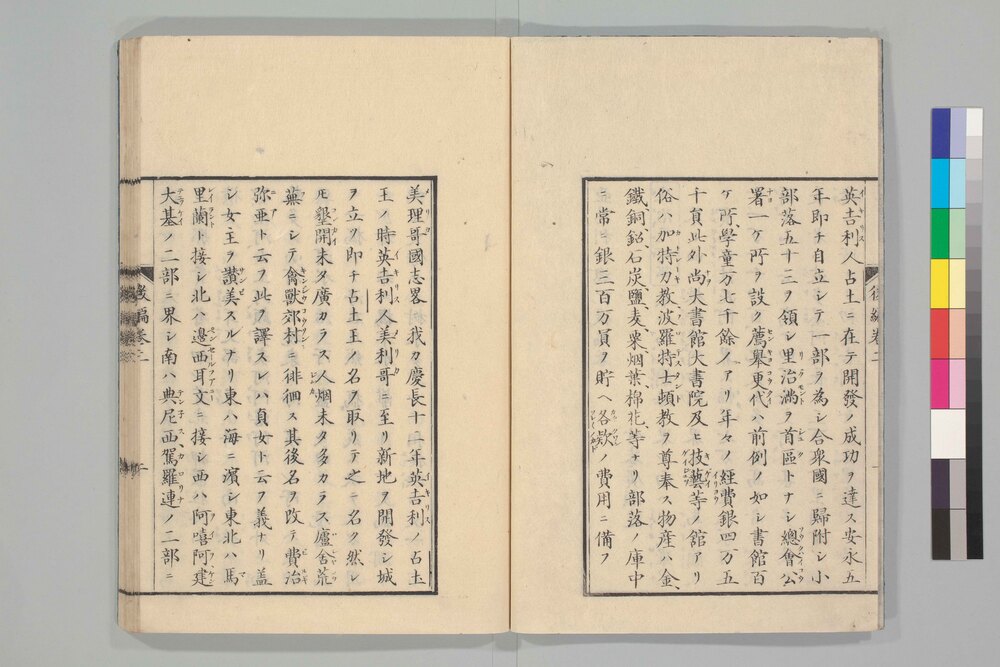 英吉利人占土ニ在テ開發ノ成功ヲ達ス安永五
年即チ自立シテ一部ヲ為シ合衆國ニ歸附シ小
部落五十三ヲ領シ里治満ヲ首區トナシ總會公
署一ケ所ヲ設ク薦舉更代ハ前例ノ如シ書館百
ケ所學童万七千餘ノアリ年々ノ經費銀四万五
千員此外尚大書館大書院及ヒ技藝等ノ館アリ
俗ハ加特力教波羅特士頓教ヲ尊奉ス物産ハ金、
鐵、銅、鉛、石炭、鹽、麦、粟、烟葉、棉花、等ナリ部落ノ庫中
ニ常ニ銀三百万員ヲ貯ヘ各欵ノ費用ニ備フ
後編巻二
美理哥國志畧ニ我カ慶長十二年英吉利ノ占土
王ノ時英吉利人美利哥ニ至リ新地ヲ開發シ城
ヲ立ツ即チ占土王ノ名ヲ取リテ之ニ名ク然レ
𪜈墾開未タ廣カラス人烟未タ多カラス廬舎荒
蕪ニシテ禽獸郊村ニ徘徊ス其後名ヲ改テ費治
弥亜ト云フ此ヲ譯スレハ貞女ト云フ義ナリ盖
シ女主ヲ讃美スルナリ東ハ海ニ濱シ東北ハ馬
里蘭ト接シ北ハ邊西耳文ニ接シ西ハ阿嘻阿建
大基ノ二部ニ界シ南ハ典尼西駕羅連ノ二部ニ
後編巻二